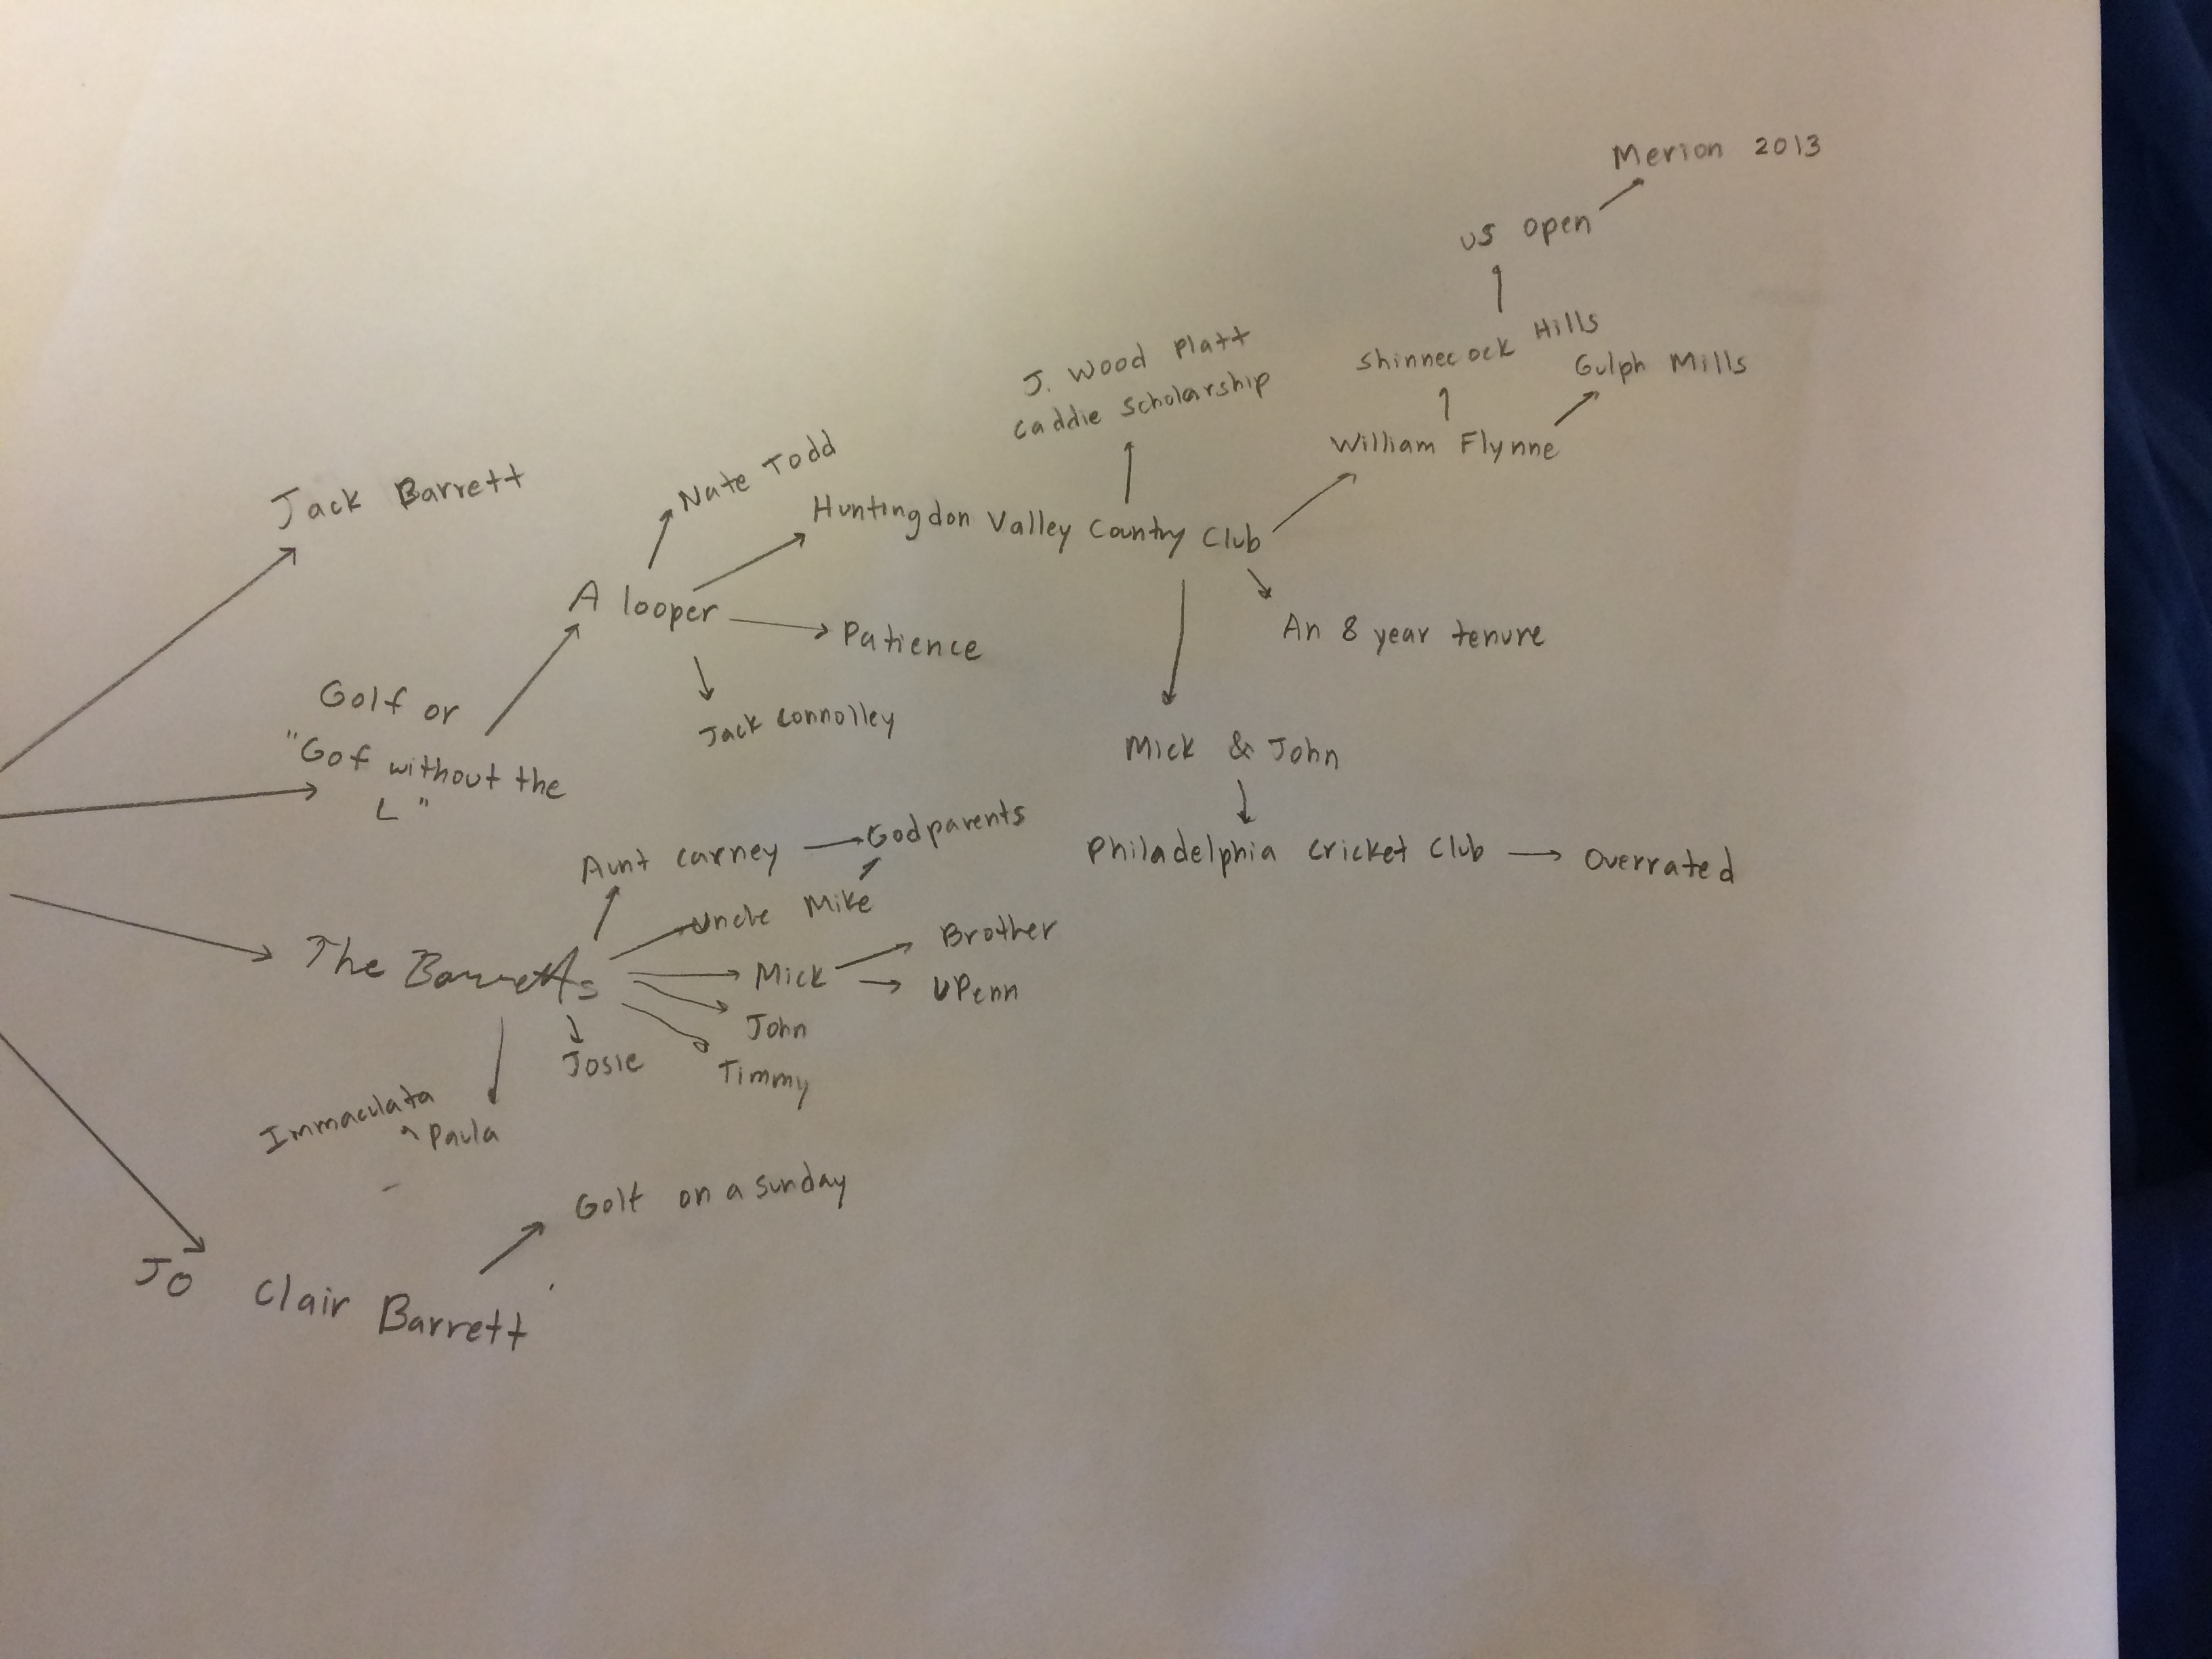 Merion 2013
US Open
Shinnecock Hills
Gulph Mills
William Flynne
J. Wood Platt
Caddie Scholarship
Nate Todd
Huntingdon Valley Country Club
Jack Barrett
A looper
Patience
An 8 year tenure
Jack Connolley
Golf or
"Gof without the
L"
Mick & John
Philadelphia Cricket Club
Overrated
Aunt Carney
Godparents
Uncle Mike
The Barretts
Mick
Brother
UPenn
John
Timmy
Josie
Immaculata
Paula
Golf on a Sunday
Jo Clair Barrett